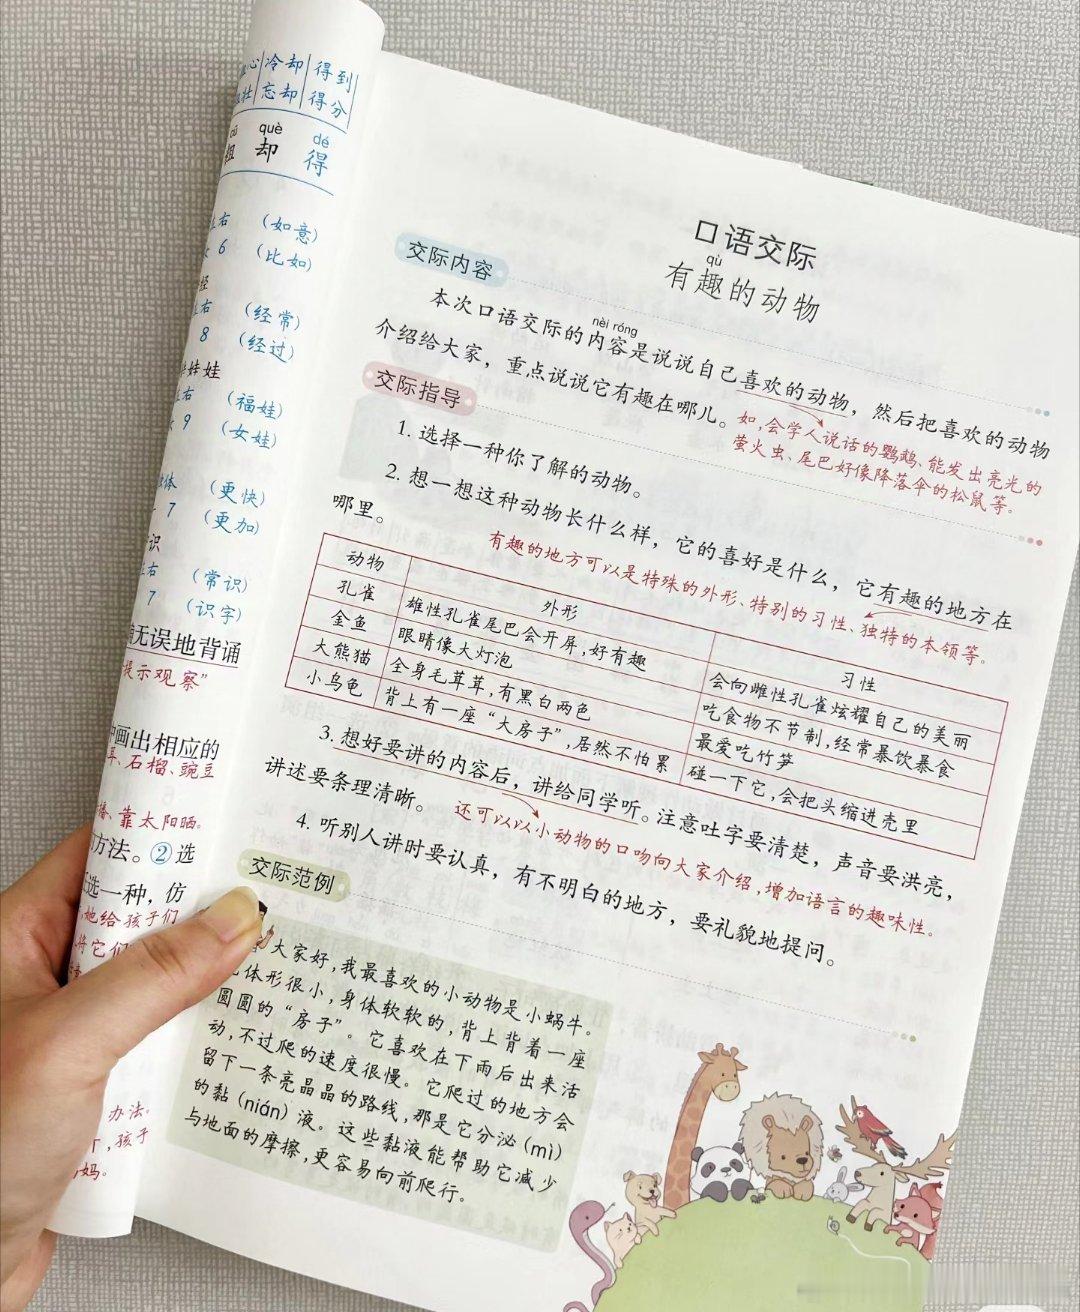 冷却 得到
忘却 得分
què dé
却 得
左右 (如意)
6 (比如)
经
左右 (经常)
8 (经过)
娃娃
左右 (福娃)
9 (女娃)
独体 (更快)
7 (更加)
识
左右 (常识)
7 (识字)
无误地背诵
提示观察”
画出相应的
石榴、豌豆
靠太阳晒。
方法。②选
选一种，仿
她给孩子们
将它们
办法。
孩子
妈妈。
口语交际
qù
有趣的动物
交际内容
nèi róng
本次口语交际的内容是说说自己喜欢的动物，然后把喜欢的动物
介绍给大家，重点说说它有趣在哪儿。
如,会学人说话的鹦鹉、能发出亮光的
萤火虫、尾巴好像降落伞的松鼠等。
交际指导
1. 选择一种你了解的动物。
2. 想一想这种动物长什么样，它的喜好是什么，它有趣的地方在
哪里。
有趣的地方可以是特殊的外形、特别的习性、独特的本领等。
动物 外形 习性
孔雀 雄性孔雀尾巴会开屏,好有趣 会向雌性孔雀炫耀自己的美丽
金鱼 眼睛像大灯泡 吃食物不节制,经常暴饮暴食
大熊猫 全身毛茸茸,有黑白两色 最爱吃竹笋
小乌龟 背上有一座“大房子”,居然不怕累 碰一下它,会把头缩进壳里
3. 想好要讲的内容后，讲给同学听。注意吐字要清楚，声音要洪亮，
讲述要条理清晰。
还可以以小动物的口吻向大家介绍,增加语言的趣味性。
4. 听别人讲时要认真，有不明白的地方，要礼貌地提问。
交际范例
大家好,我最喜欢的小动物是小蜗牛。
体形很小,身体软软的,背上背着一座
圆圆的“房子”。它喜欢在下雨后出来活
动,不过爬的速度很慢。它爬过的地方会
留下一条亮晶晶的路线,那是它分泌(mì)
的黏(nián)液。这些黏液能帮助它减少
与地面的摩擦,更容易向前爬行。